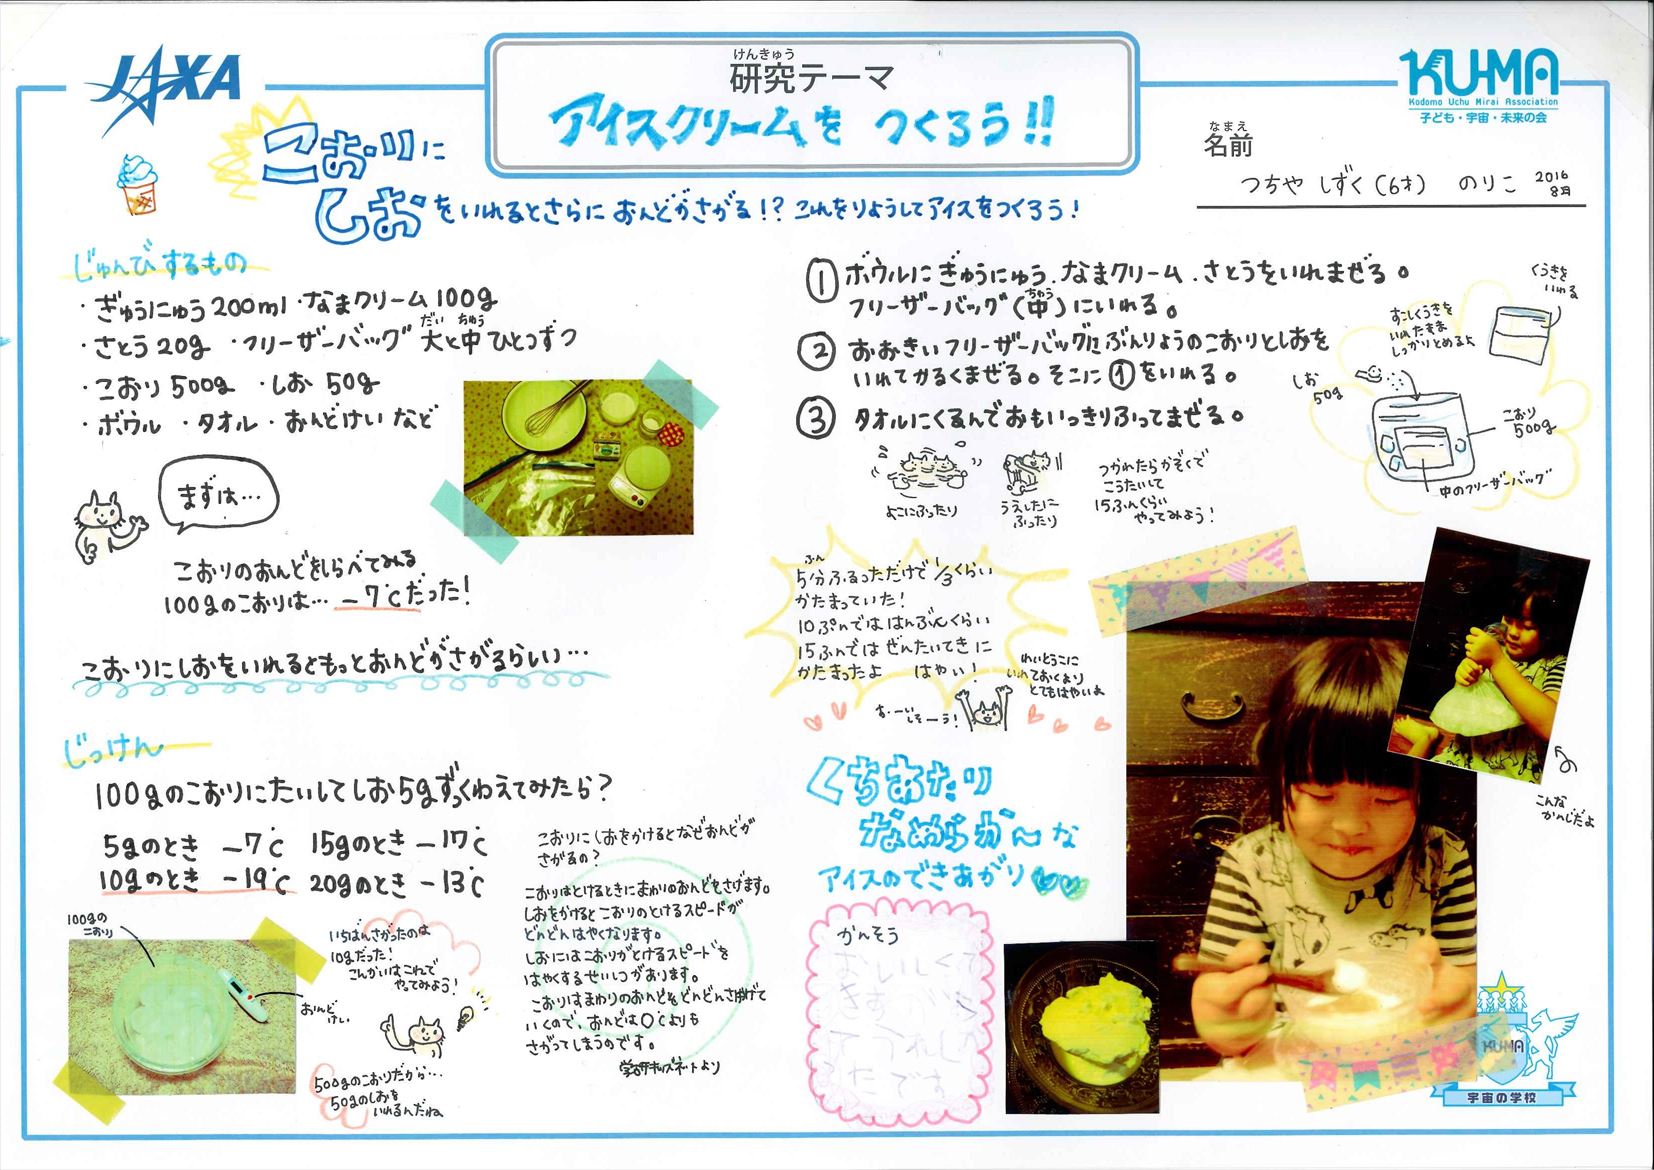 JAXA
けんきゅう
研究テーマ
アイスクリームを つくろう!!
KU-MA
Kodomo Uchu Mirai Association
子ども・宇宙・未来の会
なまえ
名前
つちや しずく(6才) のりこ 2016
8月
こおりに
しおをいれるとさらに おんどがさがる!? これをりようしてアイスをつくろう!
じゅんびするもの
・ぎゅうにゅう200ml ・なまクリーム100g
だい ちゅう
・さとう20g ・フリーザーバッグ 大と中 ひとつずつ
・こおり 500g ・しお 50g
・ボウル ・タオル ・おんどけい など
まずは…
こおりのおんどをしらべてみる
100gのこおりは… -7℃だった!
こおりにしおをいれるともっとおんどがさがるらしい…
じっけん
100gのこおりにたいしてしお5gずつくわえてみたら?
5gのとき -7℃ 15gのとき -17℃
10gのとき -19℃ 20gのとき -13℃
100gの
こおり
おんど
けい
いちばんさがったのは
10gだった!
こんかいはこれで
やってみよう!
500gのこおりだから…
50gのしおを
いれるんだね
こおりにしおをかけるとなぜおんどが
さがるの?
こおりはとけるときにまわりのおんどをさげます。
しおをかけるとこおりのとけるスピードが
どんどんはやくなります。
しおにはこおりがとけるスピードを
はやくするせいしつがあります。
こおりはまわりのおんどをどんどんさげて
いくので、おんどは0℃よりも
さがってしまうのです。
学研キッズネットより
① ボウルにぎゅうにゅう、なまクリーム、さとうをいれまぜる。
ちゅう
フリーザーバッグ(中)にいれる。
② おおきいフリーザーバッグにぶんりょうのこおりとしおを
いれてかるくまぜる。そこに①をいれる。
③ タオルにくるんでおもいっきりふってまぜる。
よこにふったり
うえしたに
ふったり
つかれたらかぞくで
こうたいして
15ふんくらい
やってみよう!
くうきを
いれる
すこしくうきを
いれたまま
しっかりとめるよ
しお
50g
こおり
500g
中のフリーザーバッグ
ふん
5分ふるっただけで 1/3くらい
かたまっていた!
10ぷんでははんぶんくらい
15ふんではぜんたいてきに
かたまったよ はやい!
れいとうこに
いれておくより
とてもはやいよ
お・ーい
しそーう!
くちあたり
なめらか〜な
アイスのできあがり
かんそう
おいしくて
うれし
たです
こんな
かんじだよ
KUMA
宇宙の学校